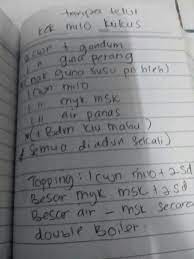 tanpa telur
kek milo kukus
1 cwn t. gandum
1.. guna perang
(nak guna susu pn bleh)
1 cwn milo
1.. myk msk
1.. air panas
(t Bdm klu mahu)
(semua di adun sekali
Topping: 1 cwn milo + 2 sd
Besar myk. msk + 2 sd
Besar air - msk secara
double Boiler.